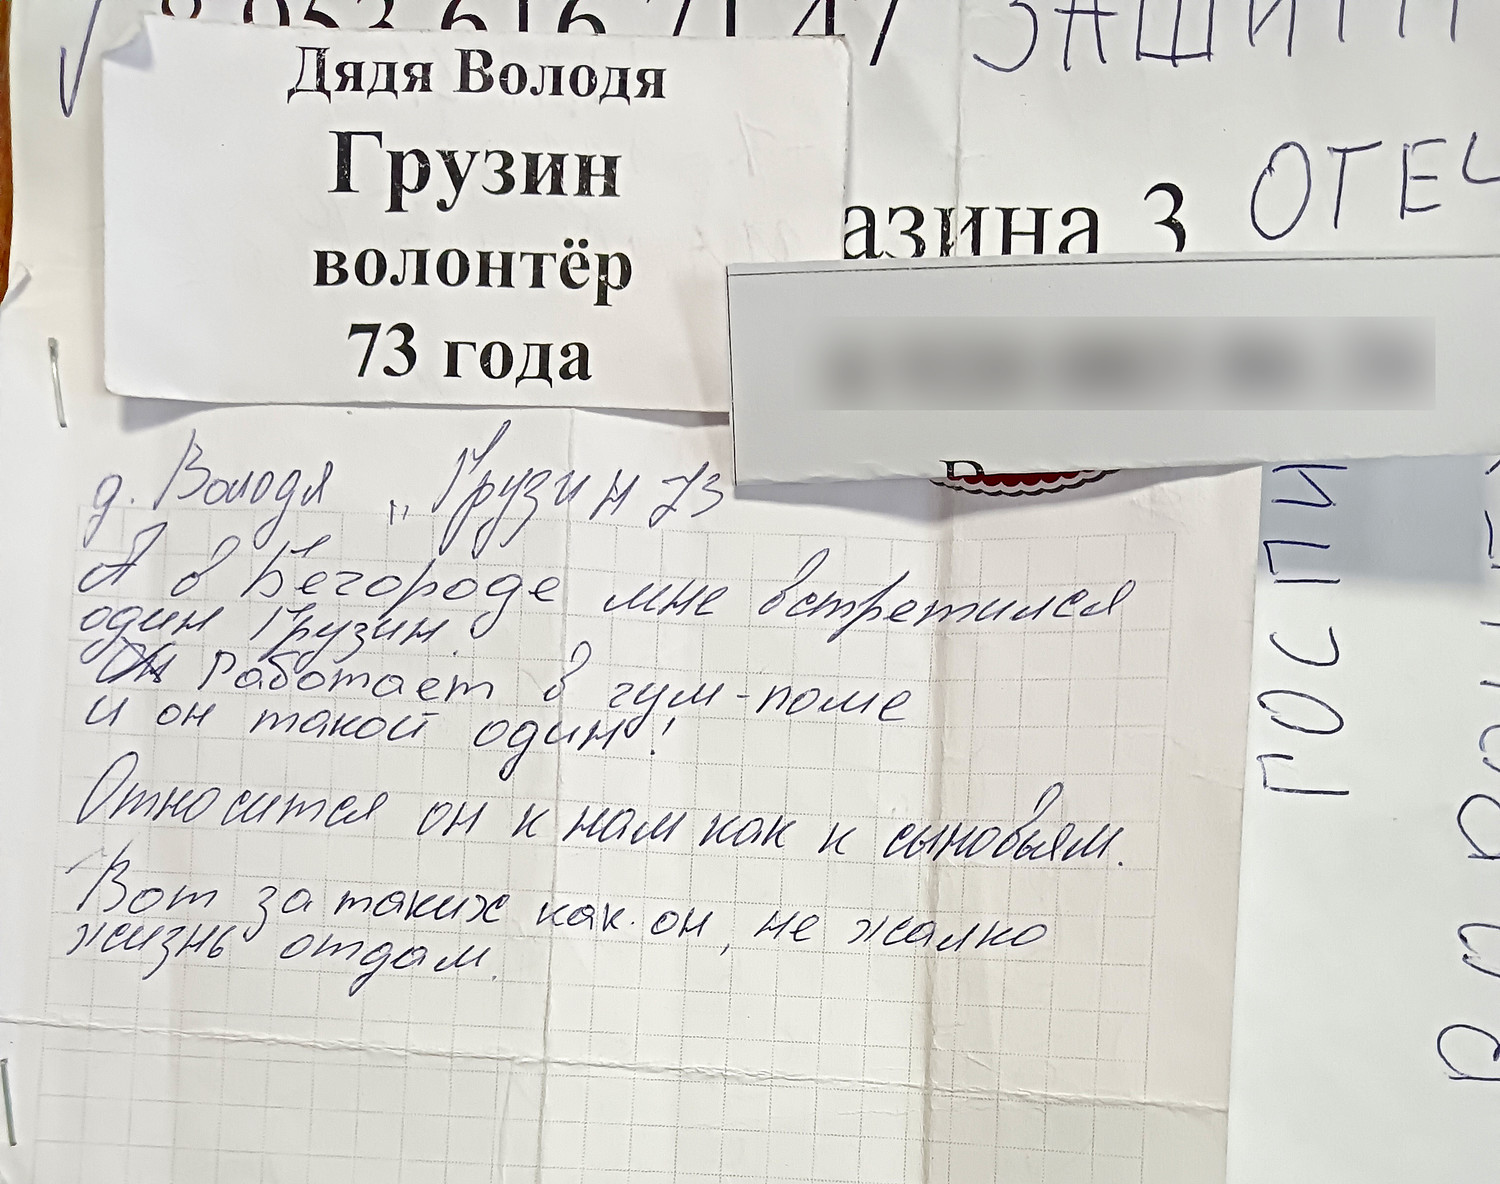 ЗАЩИТН
Дядя Володя
Грузин
волонтёр
73 года
ОТЕЧ
азина 3
д. Володя „Грузин 73
А в Бегороде мне встретился
один Грузин.
Он работает в гум-поме
и он такой один!
Относится он к нам как к сыновьям.
Вот за таких как он, не жалко
жизнь отдам.
ГОСПИ